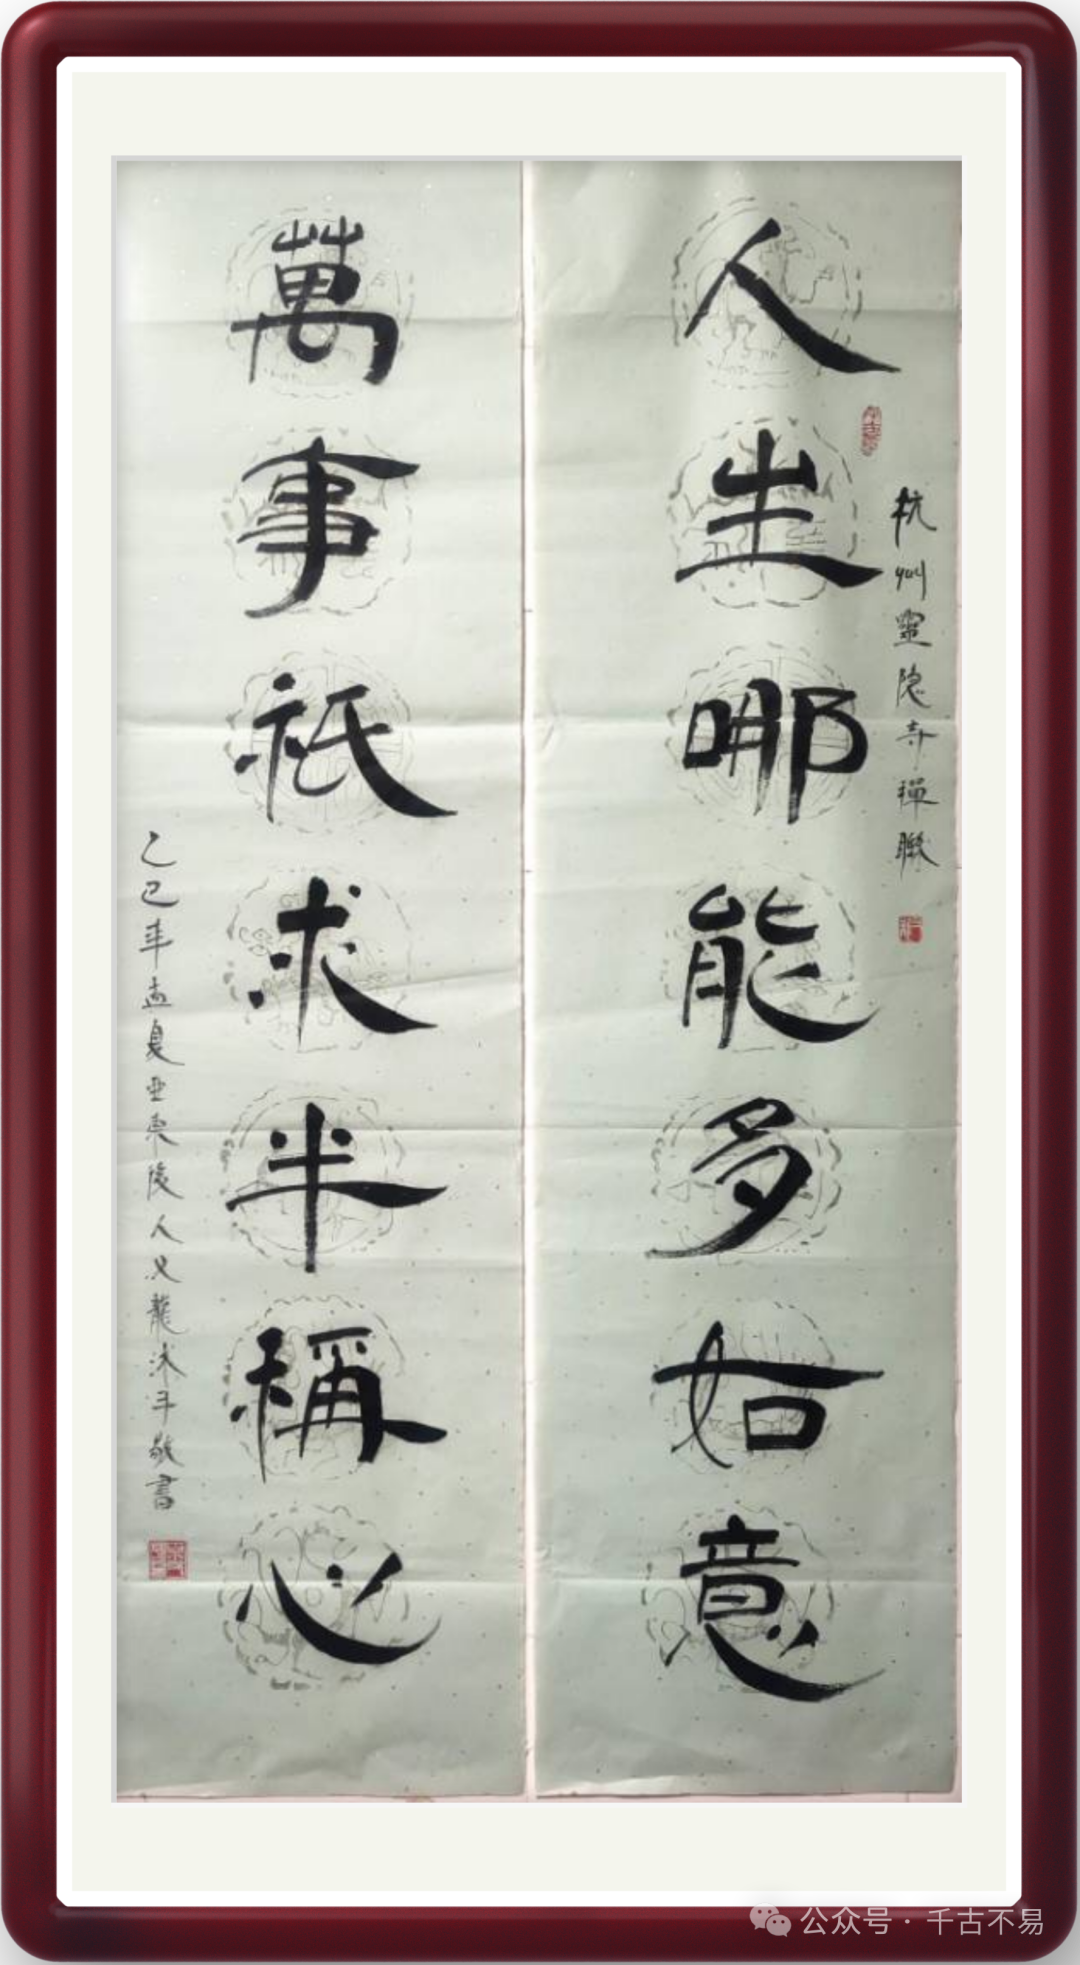 人生哪能多如意
杭州靈隐寺禅联
萬事祇求半稱心
乙巳年孟夏亚东陵人又龍沐手敬書
公众号·千古不易